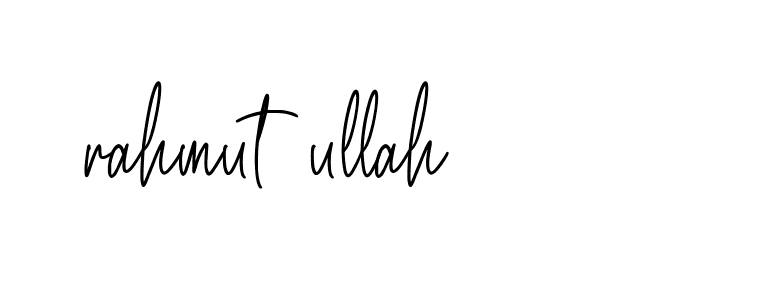 rahmut ullah